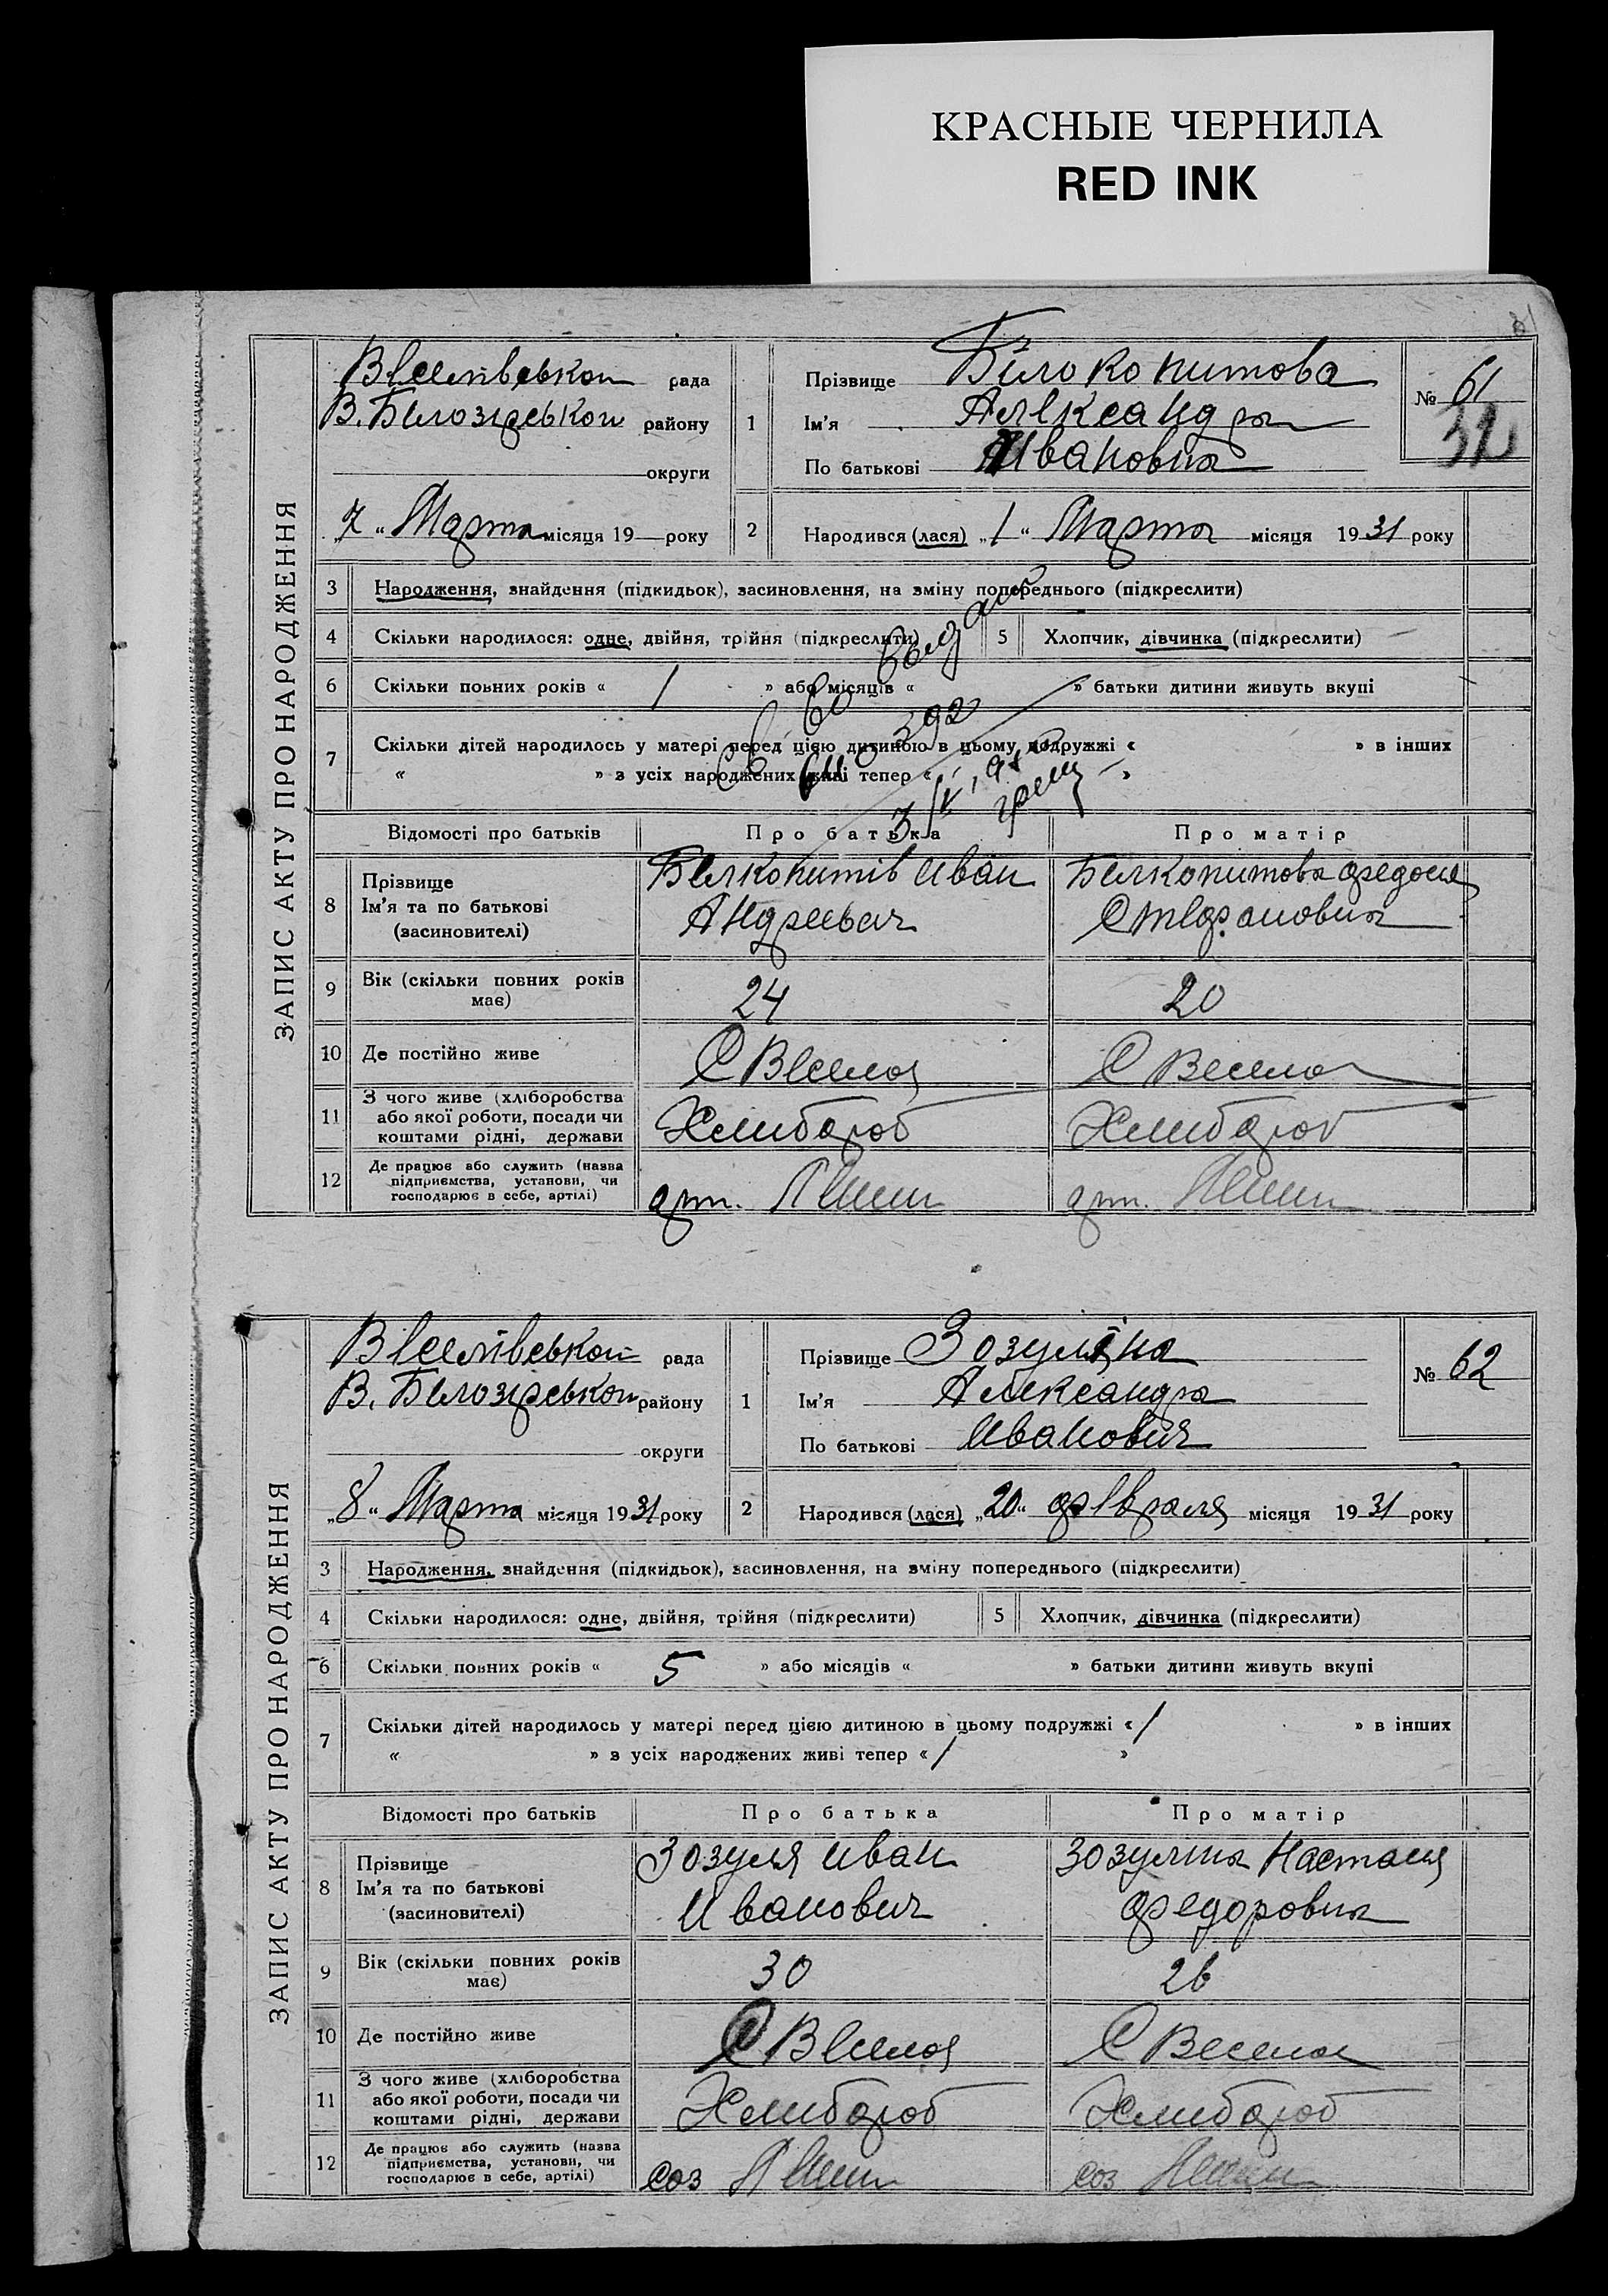 КРАСНЫЕ ЧЕРНИЛА
RED INK
ЗАПИС АКТУ ПРО НАРОДЖЕННЯ
Веселівськои рада
В. Билозірськои району
округи
„7“ Марта місяця 19 року
1
Прізвище Білокопитова
Ім'я Александра
По батькові Ивановна
№ 61
2
Народився (лася) „1“ Марта місяця 1931 року
3 Народження, знайдення (підкидьок), засиновлення, на зміну попереднього (підкреслити)
4 Скільки народилося: одне, двійня, трійня (підкреслити) 5 Хлопчик, дівчинка (підкреслити)
6 Скільки повних років « 1 » або місяців « » батьки дитини живуть вкупі
7 Скільки дітей народилось у матері перед цією дитиною в цьому подружжі « » в інших
« » з усіх народжених живі тепер « »
Відомості про батьків Про батька Про матір
8 Прізвище Ім'я та по батькові (засновителі)
Билкопитів Иван Билкопитова Федосия
Андреевич Стефановна
9 Вік (скільки повних років має) 24 20
10 Де постійно живе С Веселоя С Весела
11 З чого живе (хліборобства або якої роботи, посади чи коштами рідні, держави Хлибороб Хлибороб
12 Де працює або служить (назва підприємства, установи, чи господарює в себе, артілі) арт. арт.
ЗАПИС АКТУ ПРО НАРОДЖЕННЯ
Веселівськои рада
В. Билозірськои району
округи
„8“ Марта місяця 1931 року
1
Прізвище Зозуляна
Ім'я Александра
По батькові Иванович
№ 62
2
Народився (лася) „20“ февраля місяця 1931 року
3 Народження, знайдення (підкидьок), засиновлення, на зміну попереднього (підкреслити)
4 Скільки народилося: одне, двійня, трійня (підкреслити) 5 Хлопчик, дівчинка (підкреслити)
6 Скільки повних років « 5 » або місяців « » батьки дитини живуть вкупі
7 Скільки дітей народилось у матері перед цією дитиною в цьому подружжі « 1 » в інших
« » з усіх народжених живі тепер « 1 »
Відомості про батьків Про батька Про матір
8 Прізвище Ім'я та по батькові (засиновителі)
Зозуля Иван Зозулина Настасия
Иванович Федоровна
9 Вік (скільки повних років має) 30 26
10 Де постійно живе С Веселоя С Весела
11 З чого живе (хліборобства або якої роботи, посади чи коштами рідні, держави Хлибороб Хлибороб
12 Де працює або служить (назва підприємства, установи, чи господарює в себе, артілі) соз соз